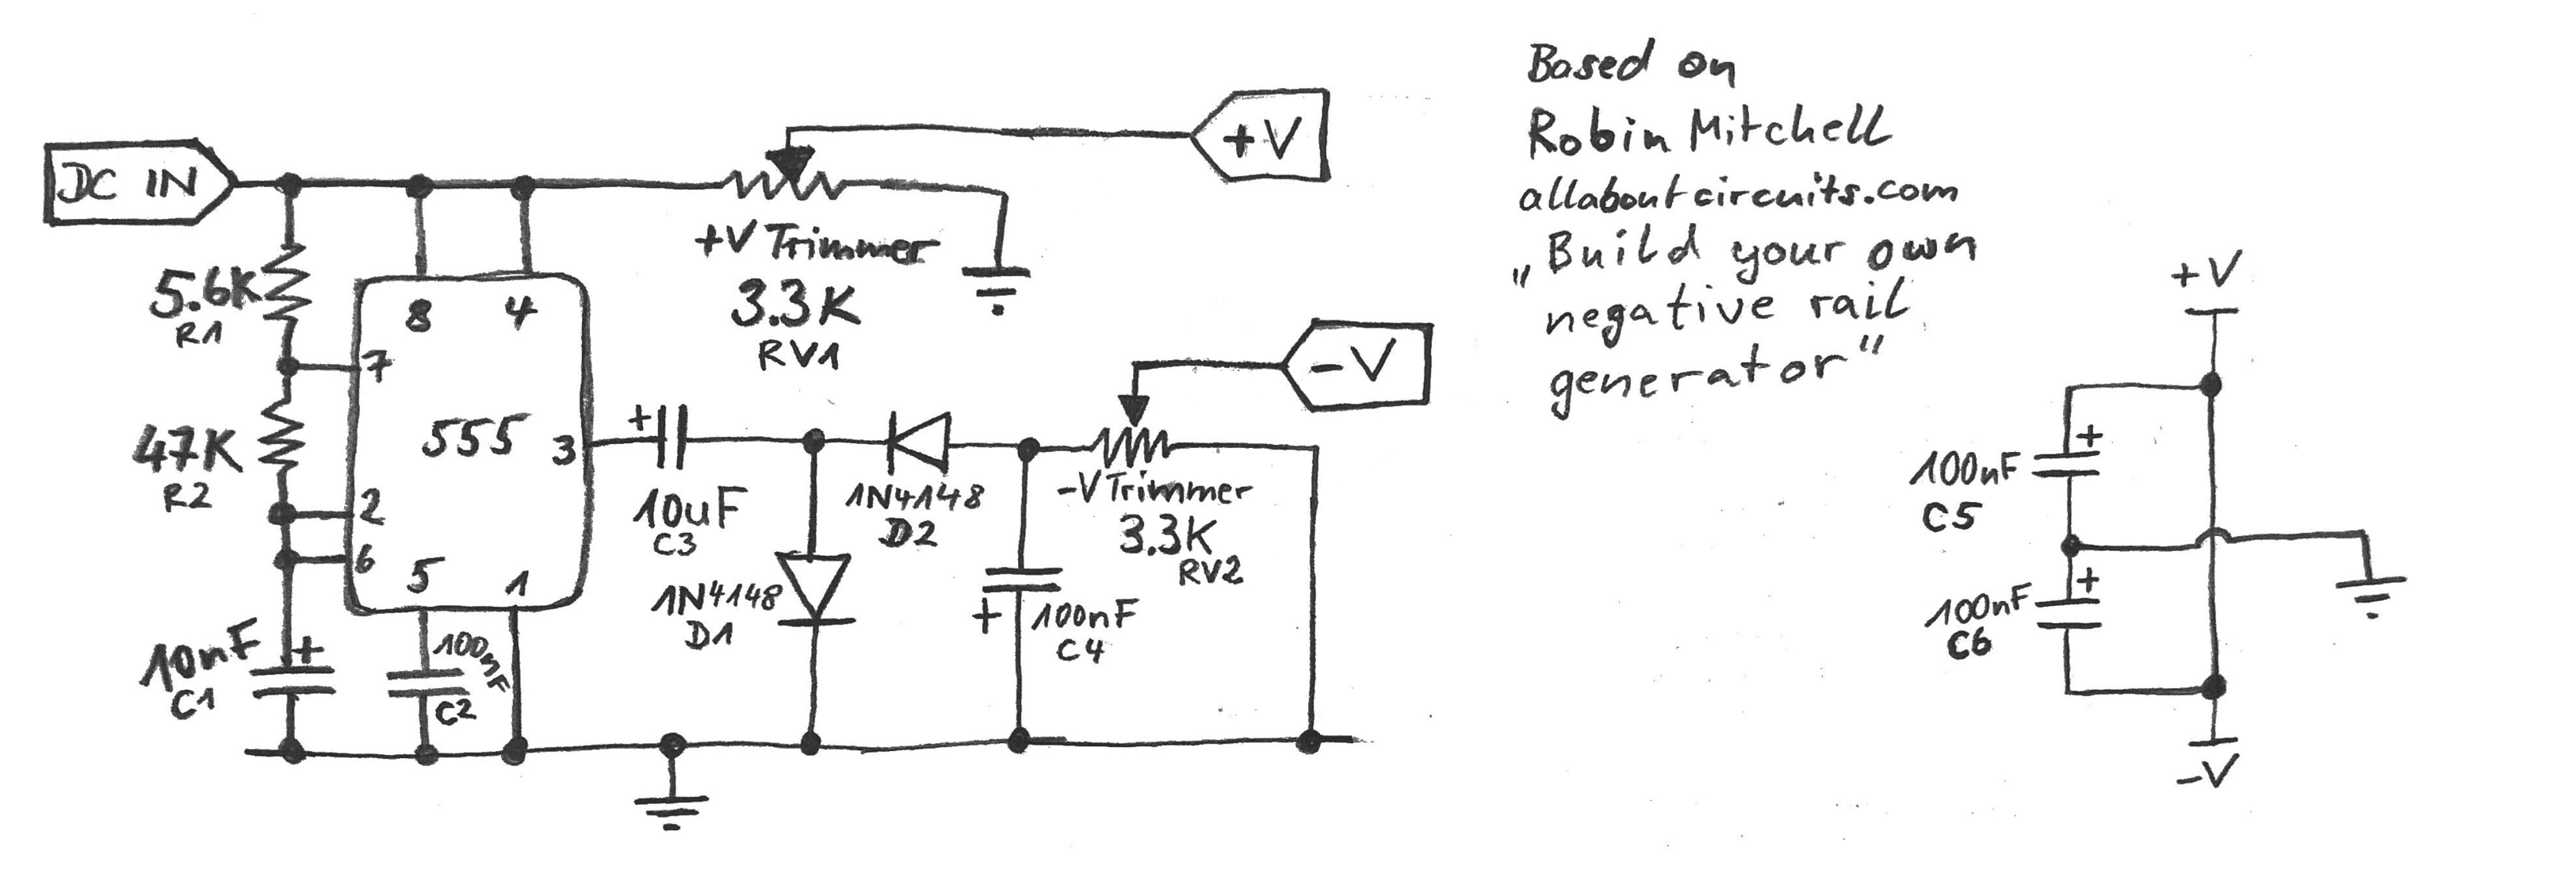 DC IN
+V
+V Trimmer
3.3K
RV1
5.6K
R1
8 4
7
47K
R2
555
3
2
6
5 1
10nF
+
C1
100nF
C2
+
10uF
C3
1N4148
D1
1N4148
D2
-V
-V Trimmer
3.3K
RV2
+
100nF
C4
Based on
Robin Mitchell
allaboutcircuits.com
„Build your own
negative rail
generator“
+V
+
100nF
C5
+
100nF
C6
-V